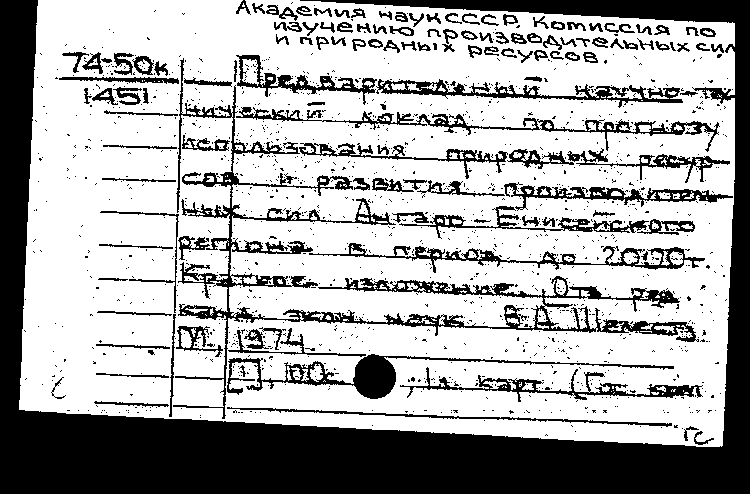 Академия наук СССР. Комиссия по
изучению производительных сил
и природных ресурсов.
74-50к
1451
Предварительный научно-тех-
нический доклад по прогнозу
использования природных ресур-
сов и развития производитель-
ных сил Ангаро-Енисейского
региона в период до 2000 г.
Краткое изложение. Отв. ред.
канд. экон. наук В.А. Шелест.
М., 1974
[1], 100с ; 1 л. карт. (Гос. ком.
ГС